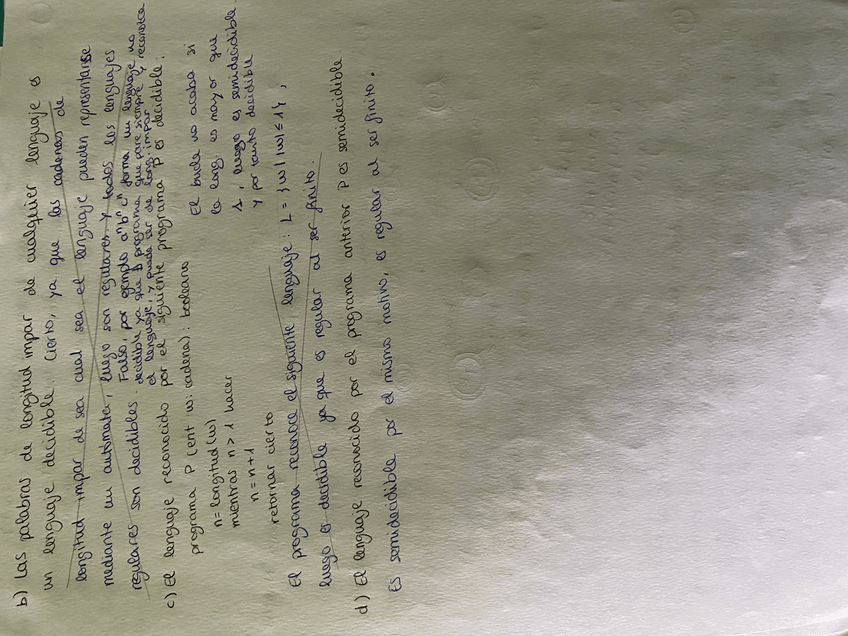 b) Las palabras de longitud impar de cualquier lenguaje es
un lenguaje decidible. Cierto, ya que las cadenas de
longitud impar de sea cual sea el lenguaje pueden representarse
mediante un autómata, luego son regulares y todos los lenguajes
regulares son decidibles.
Falso, por ejemplo aⁿbⁿcⁿ forma un lenguaje no
decidible ya que programa que pare siempre y reconozca
el lenguaje, y puede ser de long. impar
c) El lenguaje reconocido por el siguiente programa P es decidible:
programa P (ent w: cadena): booleano
n = longitud(w)
mientras n > 1 hacer
n = n + 1
retornar cierto
El bucle no acaba si
la long es mayor que
1, luego es semidecidible
y por tanto decidible
El programa reconoce el siguiente lenguaje: L = {w | |w| ≤ 1},
luego es decidible ya que es regular al ser finito.
d) El lenguaje reconocido por el programa anterior P es semidecidible
Es semidecidible por el mismo motivo, es regular al ser finito.